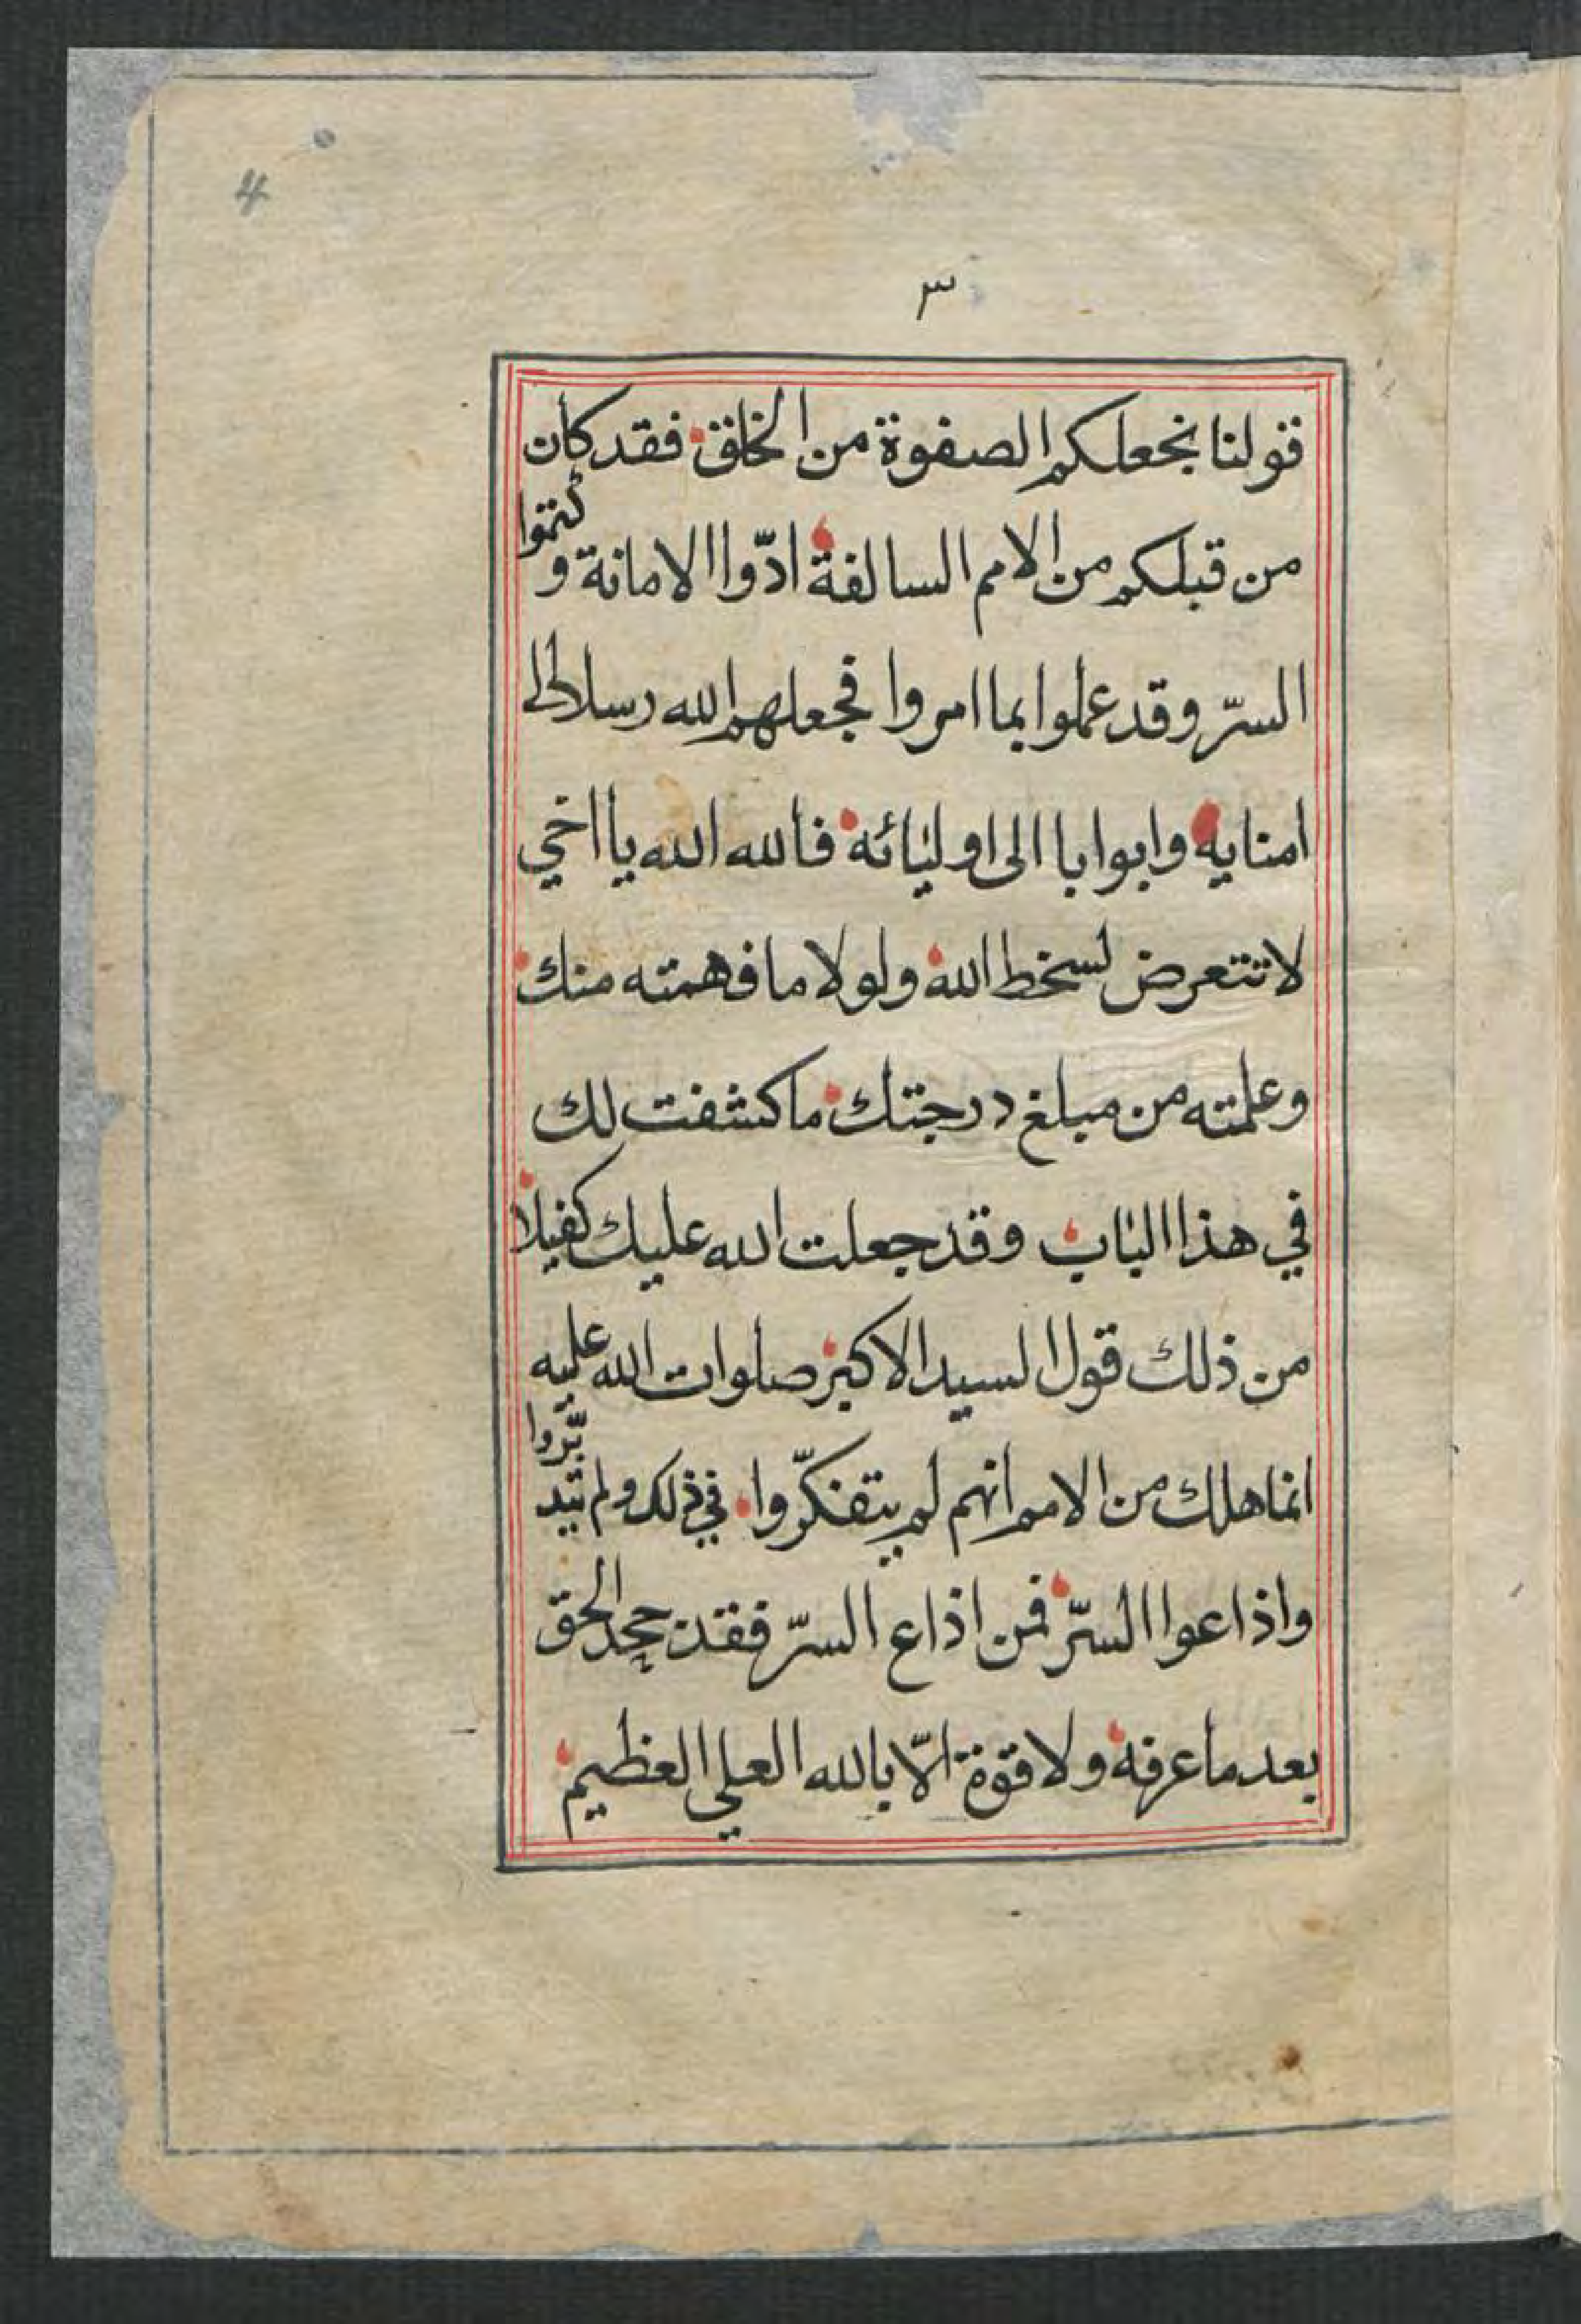 4
٣
قولنا نجعلكم الصفوة من الخلق فقد كان
من قبلكم من الامم السالفة ادّوا الامانة و كتموا
السرّ وقد عملوا بما امروا فجعلهم الله رسلا الى
امنايه وابوابا الى اوليائه فالله الله يا اخي
لا تتعرض لسخط الله ولولا ما فهمته منك
وعلمته من مبلغ درجتك ما كشفت لك
في هذا الباب وقد جعلت الله عليك كفيلا
من ذلك قول السيد الاكبر صلوات الله عليه
انما هلك من الامم انهم لم يتفكّروا في ذلك ولم يتدبّروا
واذاعوا السرّ فمن اذاع السرّ فقد جحد الحق
بعد ما عرفه ولا قوّة الّا بالله العلي العظيم